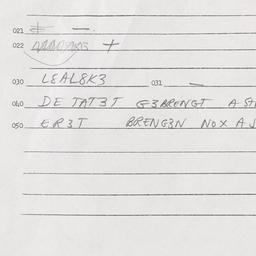 021 # —
022 +
030 LEAL8K3 031 —
040 DE TAT3T G3BRENGT A ST
050 ER3T BRENG3N NOX A J